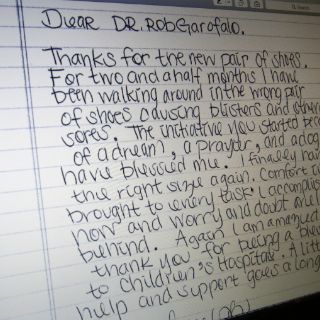 Dear DR. Rob Garofalo.
Thanks for the new pair of shoes.
For two and a half months I have
been walking around in the wrong pair
of shoes causing blisters and other
sores. The initiative you started
of a dream, a prayer, and a dog
have blessed me. I finally have
the right size again. Comfort
brought to every task I accomplis
now and worry and doubt are
behind. Again I am amazed
thank you for being a
to Children's Hospital. A litt
help and support goes a long